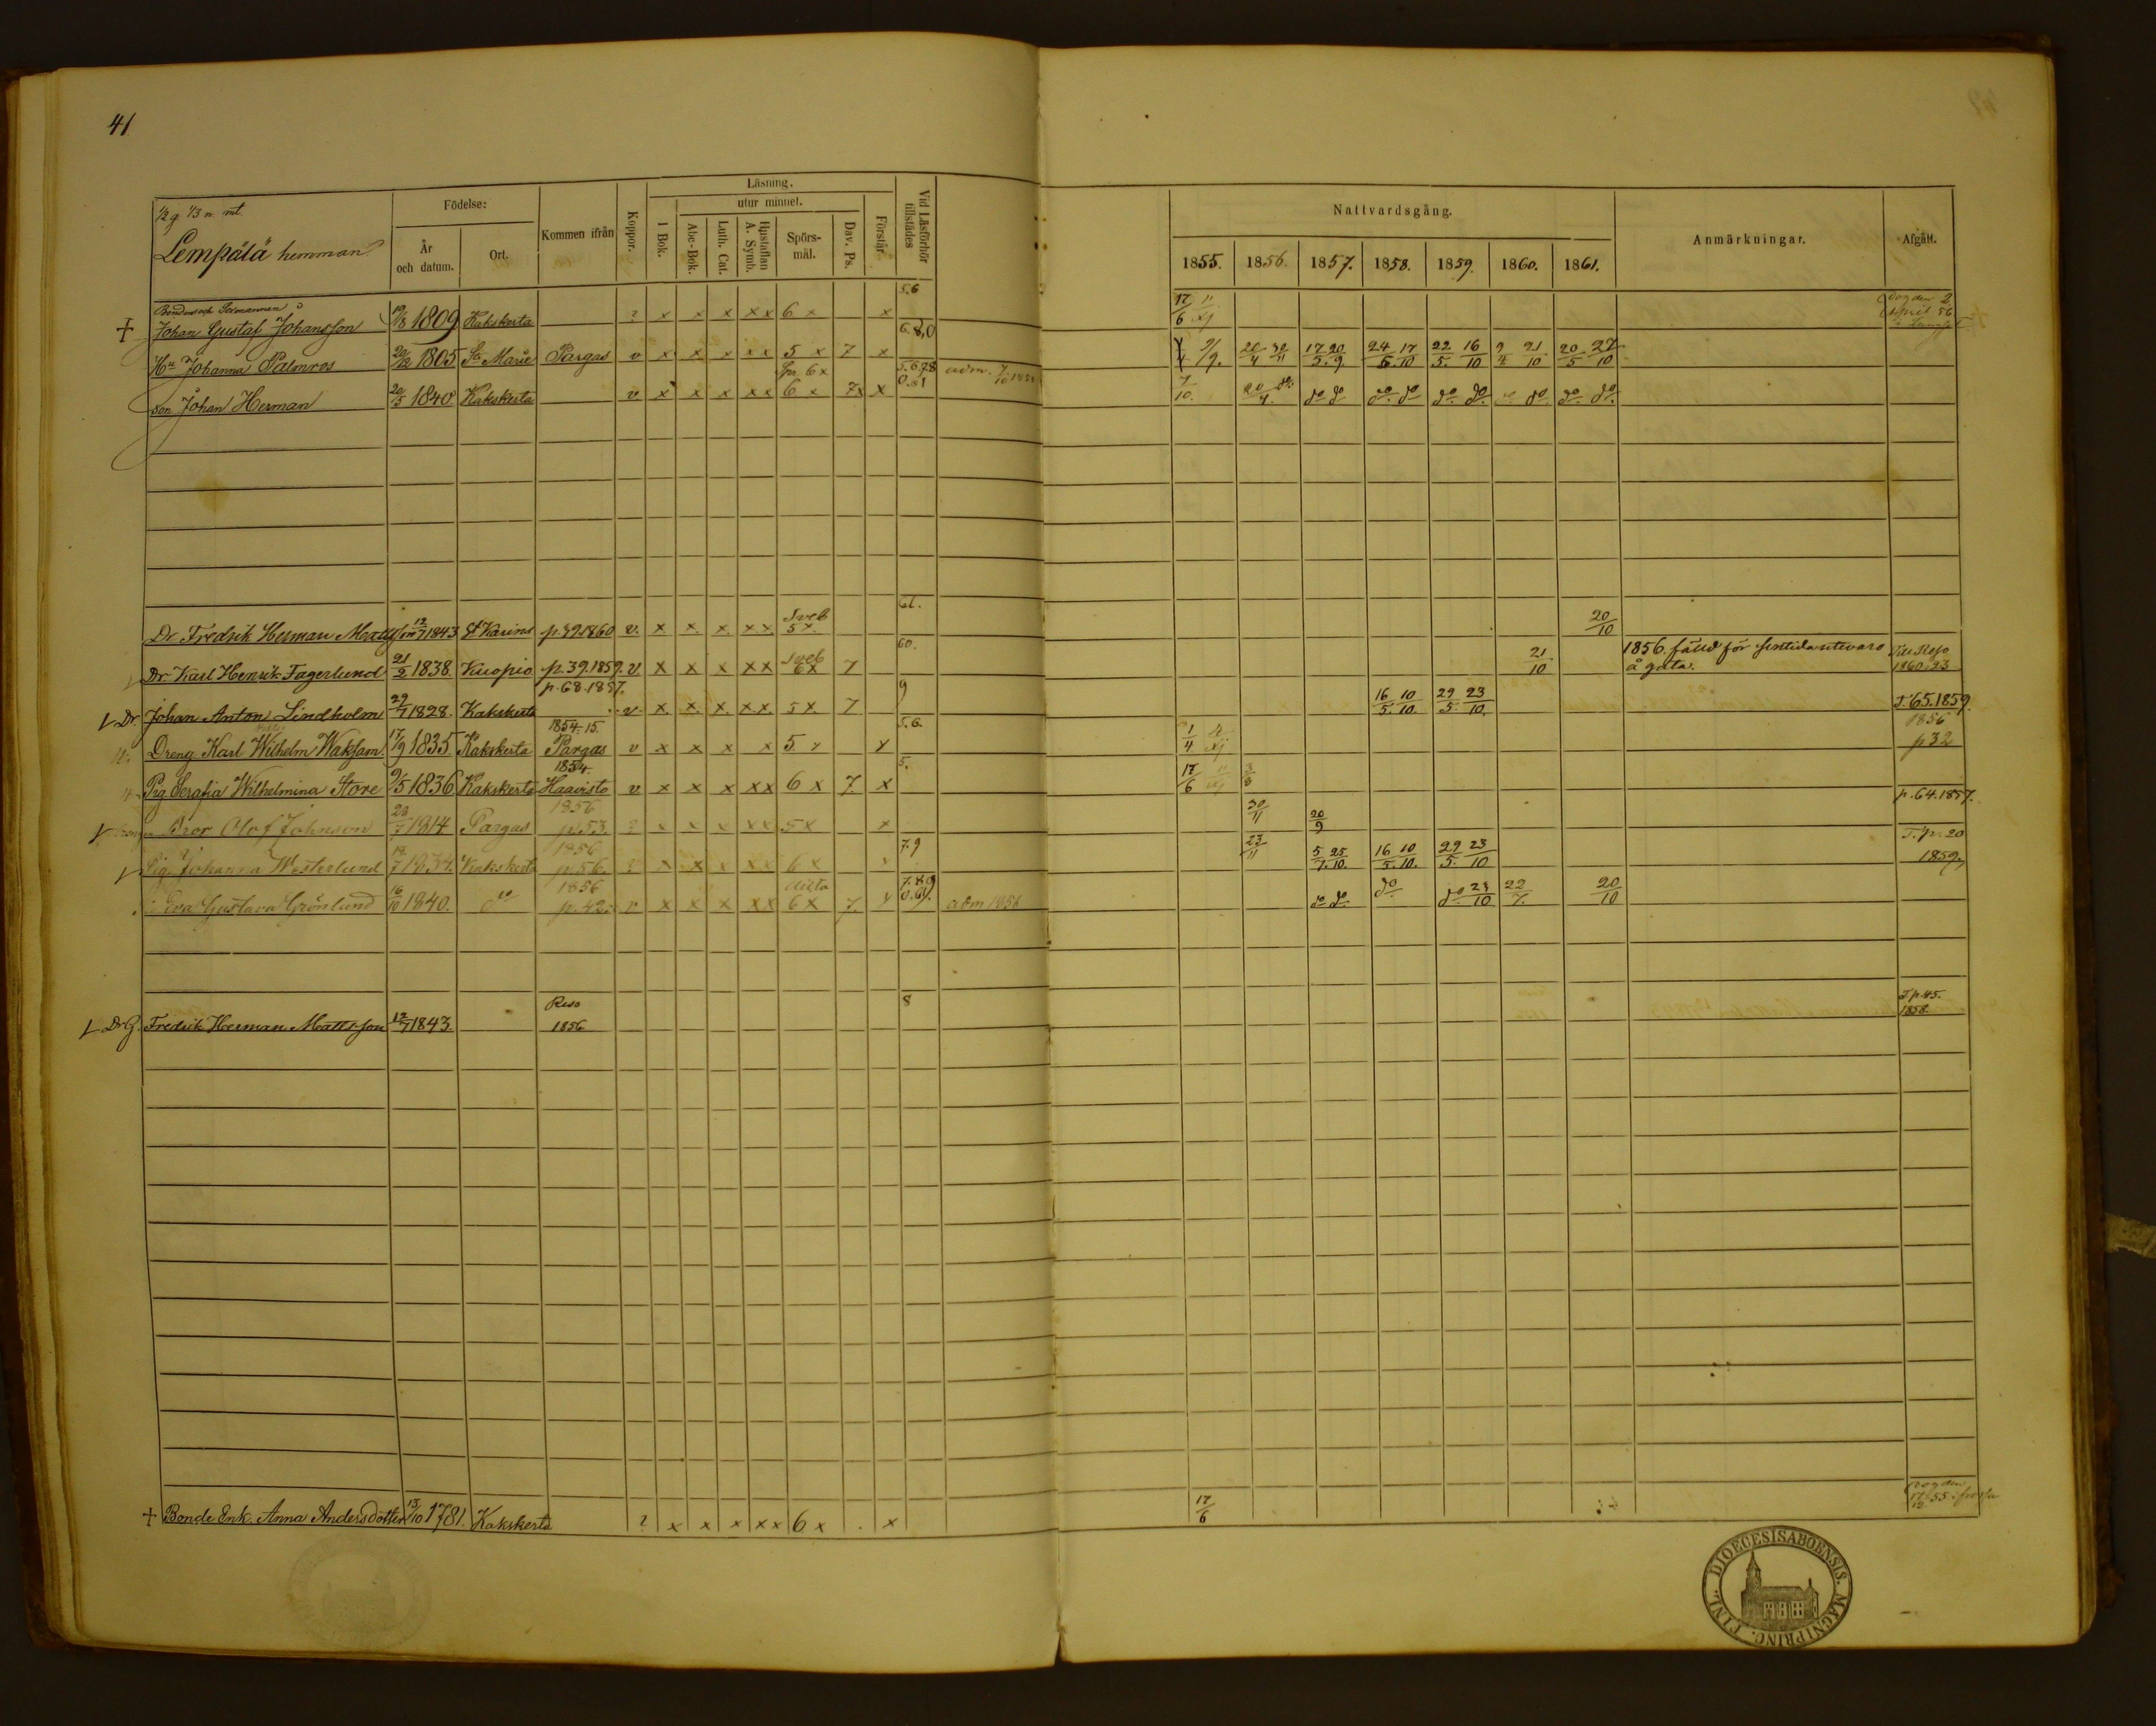 41
1/2 g 1/3 n. mt.
Lempälä hemman
Födelse:
År och datum.
Ort.
Kommen ifrån
Koppor.
Läsning.
I Bok.
utur minnet.
Abc-Bok.
Luth. Cat.
Hustaflan A. Symb.
Spörs-mål.
Dav. Ps.
Förstår.
Vid Läsförhör tillstädes
Nattvardsgång.
1855. 1856. 1857. 1858. 1859. 1860. 1861.
Anmärkningar.
Afgått.
Johan Gustaf Johansson 19/8 1809 Kakskerta ? x x x x x 6 x x 5.6 17/6 11/xj dog den 2 April 56
Hu Johanna Palmros 1805 St Marie Pargas v x x x x x 5 x 7 x 6.8,0 17 20 5. 9. 24 17 5. 10 22 16 5. 10 21/10 20 27 5 10
Son Johan Herman 20/5 1840 Kakskerta v x x x x x Spr. 6 x 6 x 7 x x 5.6.7.8 0.61 adm. 7/10 7/10. 20/4. do do do do do do do do do
Dr Fredrik Herman Mattsson 12/7 1843 St Karins p. 39.1860 v. x x. x. x x. Sveb 5 x. 61. 20/10
Dr Karl Henrik Fagerlund 21/2 1838. Kuopio p. 39.1859. v. x x x x x Sveb 6 x 7 60. 21/10 1856. fälld för
å gata. Till Reso 1860.23
Dr. Johan Anton Lindholm 29/7 1828. Kakskerta p. 68.1857. v. x. x. x. x x. 5 x. 7 9 16 10 5. 10. 29 23 5. 10. T. 65.1859.
Dreng Karl Wilhelm Waksam 17/9 1835. Kakskerta 1854.15. Pargas v x x x x 5. x x 5.6. 1/4 1856 p 32
Pig. Serafia Wilhelmina Store 9/5 1836 Kakskerta 1854. Haavisto v x x x x x 6 x 7. x 5. 17/6 11/xj 3/8 p. 64.1857.
Bror Olof Johnson 28/7 1814 Pargas 1856 p. 53. ? x x x x x 5 x x 30/11 20/9
Pig. Johanna Westerlund 1834. Kakskerta 1856 p. 56. ? x x x x x 6 x x 7.9 23/11 5 25 7. 10. 16 10 5. 10. 29 23 5. 10 T. p. 20 1859.
Eva Gustava Grönlund 16/10 1840. do 1856 p. 42. v x x x x x 6 x 7. x 7.8.9 0.61. adm 1856 do do do do 23/10 22/7. 20/10
Dr G. Fredrik Herman Mattsson 12/7 1843. Reso 1856 8 T p. 45. 1858.
Bonde Enk. Anna Andersdotter 15/10 1781. Kakskerta ? x x x x x 6 x . x 17/6 Dog den 17/12 55
FINL. DIOECESIS ABOENSIS. MAGNI PRINC.